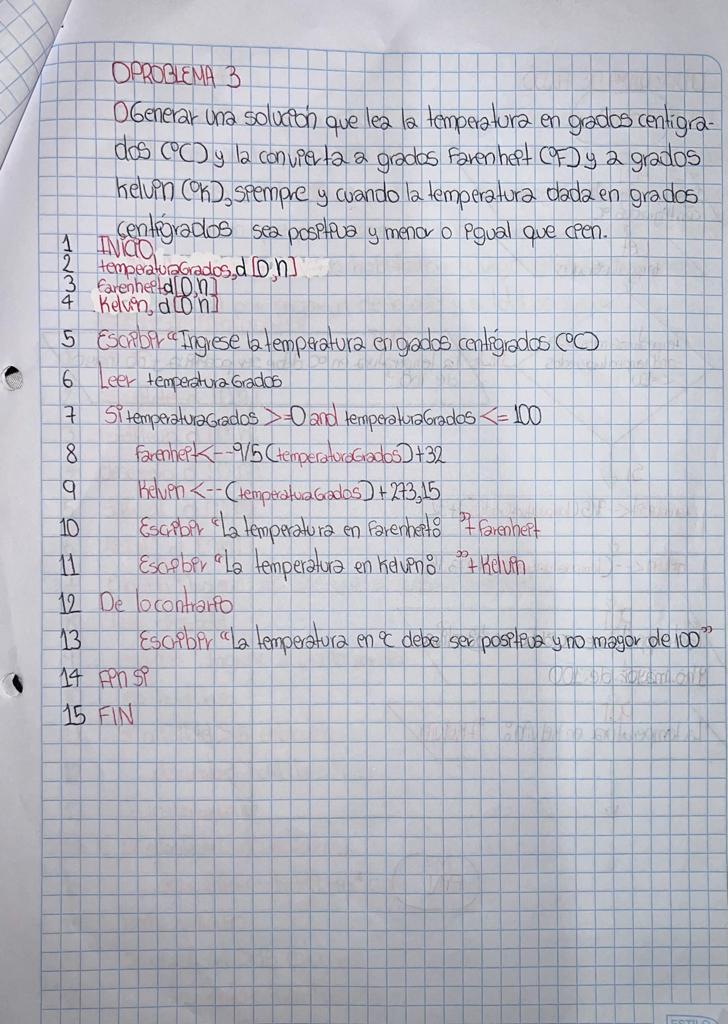 PROBLEMA 3
Generar una solución que lea la temperatura en grados centígra-
dos (°C) y la convierta a grados Farenheit (°F) y a grados
kelvin (°K), siempre y cuando la temperatura dada en grados
centígrados sea positiva y menor o igual que cien.
1 INICIO
2 temperaturaGrados, d [0,n]
3 farenheit d[0,n]
4 Kelvin, d [0 n]
5 Escribir "Ingrese la temperatura en grados centígrados (°C)
6 Leer temperatura Grados
7 Si temperaturaGrados >=0 and temperaturaGrados <= 100
8 farenheit<--9/5 (temperaturaGrados)+32
9 Kelvin <--(temperaturaGrados)+273,15
10 Escribir "La temperatura en Farenheit: "+ farenheit
11 Escribir "La temperatura en Kelvin: "+ Kelvin
12 De lo contrario
13 Escribir "La temperatura en °C debe ser positiva y no mayor de 100"
14 Fin si
15 FIN